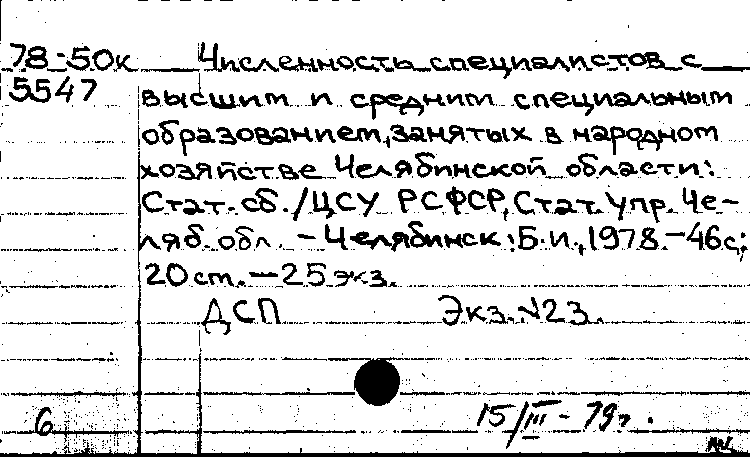 78-50к Численность специалистов с
5547 высшим и средним специальным
образованием, занятых в народном
хозяйстве Челябинской области:
Стат. сб. / ЦСУ РСФСР, Стат. упр. Че-
ляб. обл. – Челябинск: Б.и., 1978. – 46 с;
20 см. – 25 экз.
ДСП Экз. №23.
6 15/III - 79г.